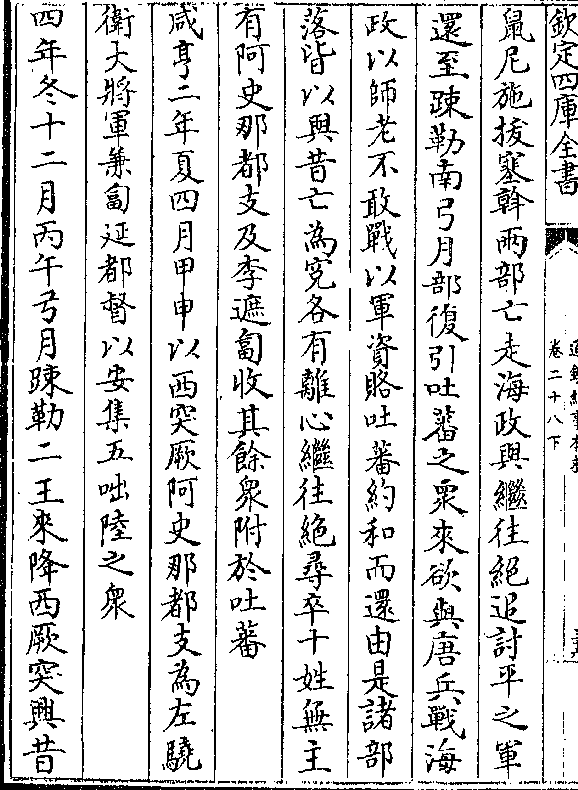 欽定四庫全書
卷二十八下
鼠尼施拔塞幹兩部亡走海政與繼往絶追討平之軍
還至踈勒南弓月部復引吐蕃之衆來欲與唐兵戰海
政以師老不敢戰以軍資賂吐蕃約和而還由是諸部
落皆以興昔亡為寃各有離心繼往絶尋卒十姓無主
有阿史那都支及李遮匐收其餘衆附於吐蕃
咸亨二年夏四月甲申以西突厥阿史那都支為左驍
衛大將軍兼匐延都督以安集五咄陸之衆
四年冬十二月丙午弓月踈勒二王來降西厥突興昔